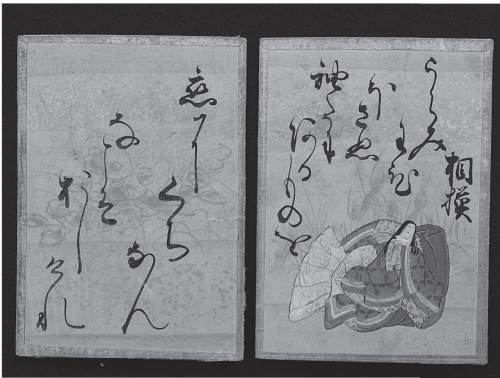 相摸
うらみ
わひ
ほさぬ
袖たに
あるものを
恋に
くち
なん
なこそ
おし
けれ